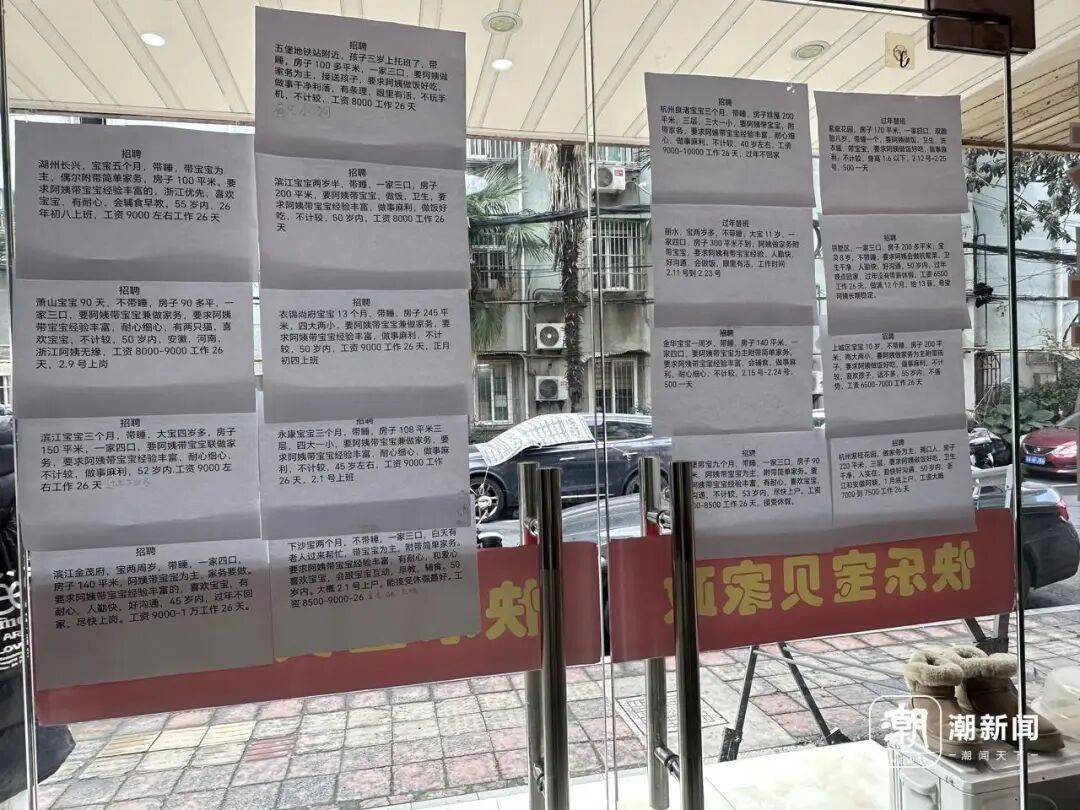 招聘
湖州长兴，宝宝五个月，带睡，带宝宝为
主，偶尔附带简单家务，房子 100 平米。要
求阿姨带宝宝经验丰富的，浙江优先，喜欢
宝宝，有耐心，会辅食早教，55 岁内，26
年初八上班，工资 9000 左右工作 26 天
招聘
萧山宝宝 90 天，不带睡，房子 90 多平，一
家三口，要阿姨带宝宝兼做家务，要求阿
姨带宝宝经验丰富，耐心细心，有两只猫，喜
欢宝宝，不计较，50 岁内，安徽，河南，
浙江阿姨无缘，工资 8000-9000 工作 26
天，2.9 号上岗
招聘
滨江宝宝三个月，带睡，大宝四岁多，房子
150 平米，一家四口，要阿姨带宝宝联做家
务，要求阿姨带宝宝经验丰富，耐心细心，
不计较，做事麻利，52 岁内.工资 9000 左
右工作 26 天
招聘
滨江金茂府，宝两周岁，带睡，一家四口，
房子 140 平米，阿姨带宝宝为主，家务要做。
要求阿姨带宝宝经验丰富的，喜欢宝宝，有
耐心，人勤快，好沟通，45 岁内，过年不回
家，尽快上岗。工资 9000-1 万工作 26 天。
招聘
五堡地铁站附近，孩子三岁上托班了，带
睡，房子 100 多平米，一家三口，要阿姨做
家务为主，接送孩子，要求阿姨做饭好吃，
做事干净利落，有条理，眼里有活，不玩手
机，不计较，工资 8000 工作 26 天
招聘
滨江宝宝两岁半，带睡，一家三口，房子
200 平米，要阿姨带宝宝，做饭，卫生，要
求阿姨带宝宝经验丰富，做事麻利，做饭好
吃，不计较，50 岁内，工资 8000 工作 26
天
招聘
衣锦尚府宝宝 13 个月，带睡，房子 245 平
米，四大两小，要阿姨带宝宝兼做家务，要
求阿姨带宝宝经验丰富，做事麻利，不计
较，50 岁内，工资 9000 工作 26 天，正月
初四上班
招聘
永康宝宝三个月，带睡，房子 108 平米三
层，四大一小，要阿姨带宝宝兼做家务，要
求阿姨带宝宝经验丰富，耐心细心，做事麻
利，不计较，45 岁左右，工资 9000 工作
26 天，2.1 号上班
招聘
下沙宝两个月，不带睡，一家三口，白天有
老人过来帮忙，带宝宝为主，附带简单家务。
要求阿姨带宝宝经验丰富，有耐心，和爱心
喜欢宝宝，会跟宝宝互动，早教，辅食。50
岁内。大概 2.1 号上户，能接受休假最好，工
资 8500-9000-26
招聘
杭州良渚宝宝三个月，带睡，房子排屋 200
平米，三层，三大一小，要阿姨带宝宝，附
带家务，要求阿姨带宝宝经验丰富，耐心细
心，做事麻利，不计较，40 岁左右，工资
9000-10000 工作 26 天，过年不回家
过年替班
丽水，宝两岁多，不带睡，大宝 11 岁，一
家四口，房子 300 平米不到，阿姨做家务附
带宝宝，要求阿姨有带宝经验，人勤快，
好沟通，会做饭，眼里有活，工作时间
2.11 号到 2.23 号
招聘
金华宝宝一周岁，带睡，房子 140 平米，一
家四口，要阿姨带宝宝为主附带简单家务，
要求阿姨带宝宝经验丰富，会辅食，做事麻
利，耐心细心，不计较，2.15 号-2.24 号，
500 一天
招聘
宝九个月，带睡，一家三口，房子 90
米，带宝宝为主，附带简单家务。要
求阿姨带宝宝经验丰富，有耐心，喜欢宝宝，
沟通，不计较，53 岁内，尽快上户。工资
00-8500 工作 26 天，接受休假。
过年替班
紫庭花园，房子 170 平米，一家四口，双胞
胎八岁，带睡一个，要阿姨做饭，卫生，洗
衣服，带宝宝，要求阿姨做饭好吃，做事麻
利，不计较，身高 1.6 以下，2.12 号-2.25
号，500 一天
招聘
拱墅区，一家三口，房子 200 多平米，宝
贝 8 岁，不带睡，要求阿姨会做杭帮菜，卫
生干净，人勤快，好沟通，50 岁内，过年
晚点回家，过年没有带薪休假，工资 6500
工作 26 天，做满 12 个月，给 13 薪，希望
阿姨长期稳定。
招聘
上城区宝宝 10 岁，不带睡，房子 200
平米，两大两小，要阿姨做家务为主附带孩
子，要求阿姨做饭好吃，做事麻利，不计
较，喜欢孩子，话不多，55 岁内，不强
势，工资 6500-7000 工作 26 天
招聘
杭州紫桂花园，做家务为主，两口人，房子
220 平米，三层，要求阿姨做饭好吃，卫生
干净，人实在，勤快好沟通，50 岁内，浙
江和安徽阿姨，1 月底上户，工资大概
7000 到 7500 工作 26 天
快乐宝贝家政
潮新闻
潮闻天下